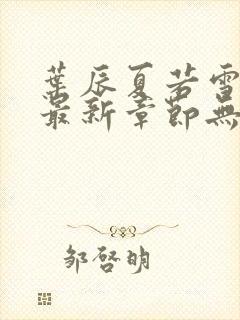 葉辰夏若雪
最新章節無
邹啓明